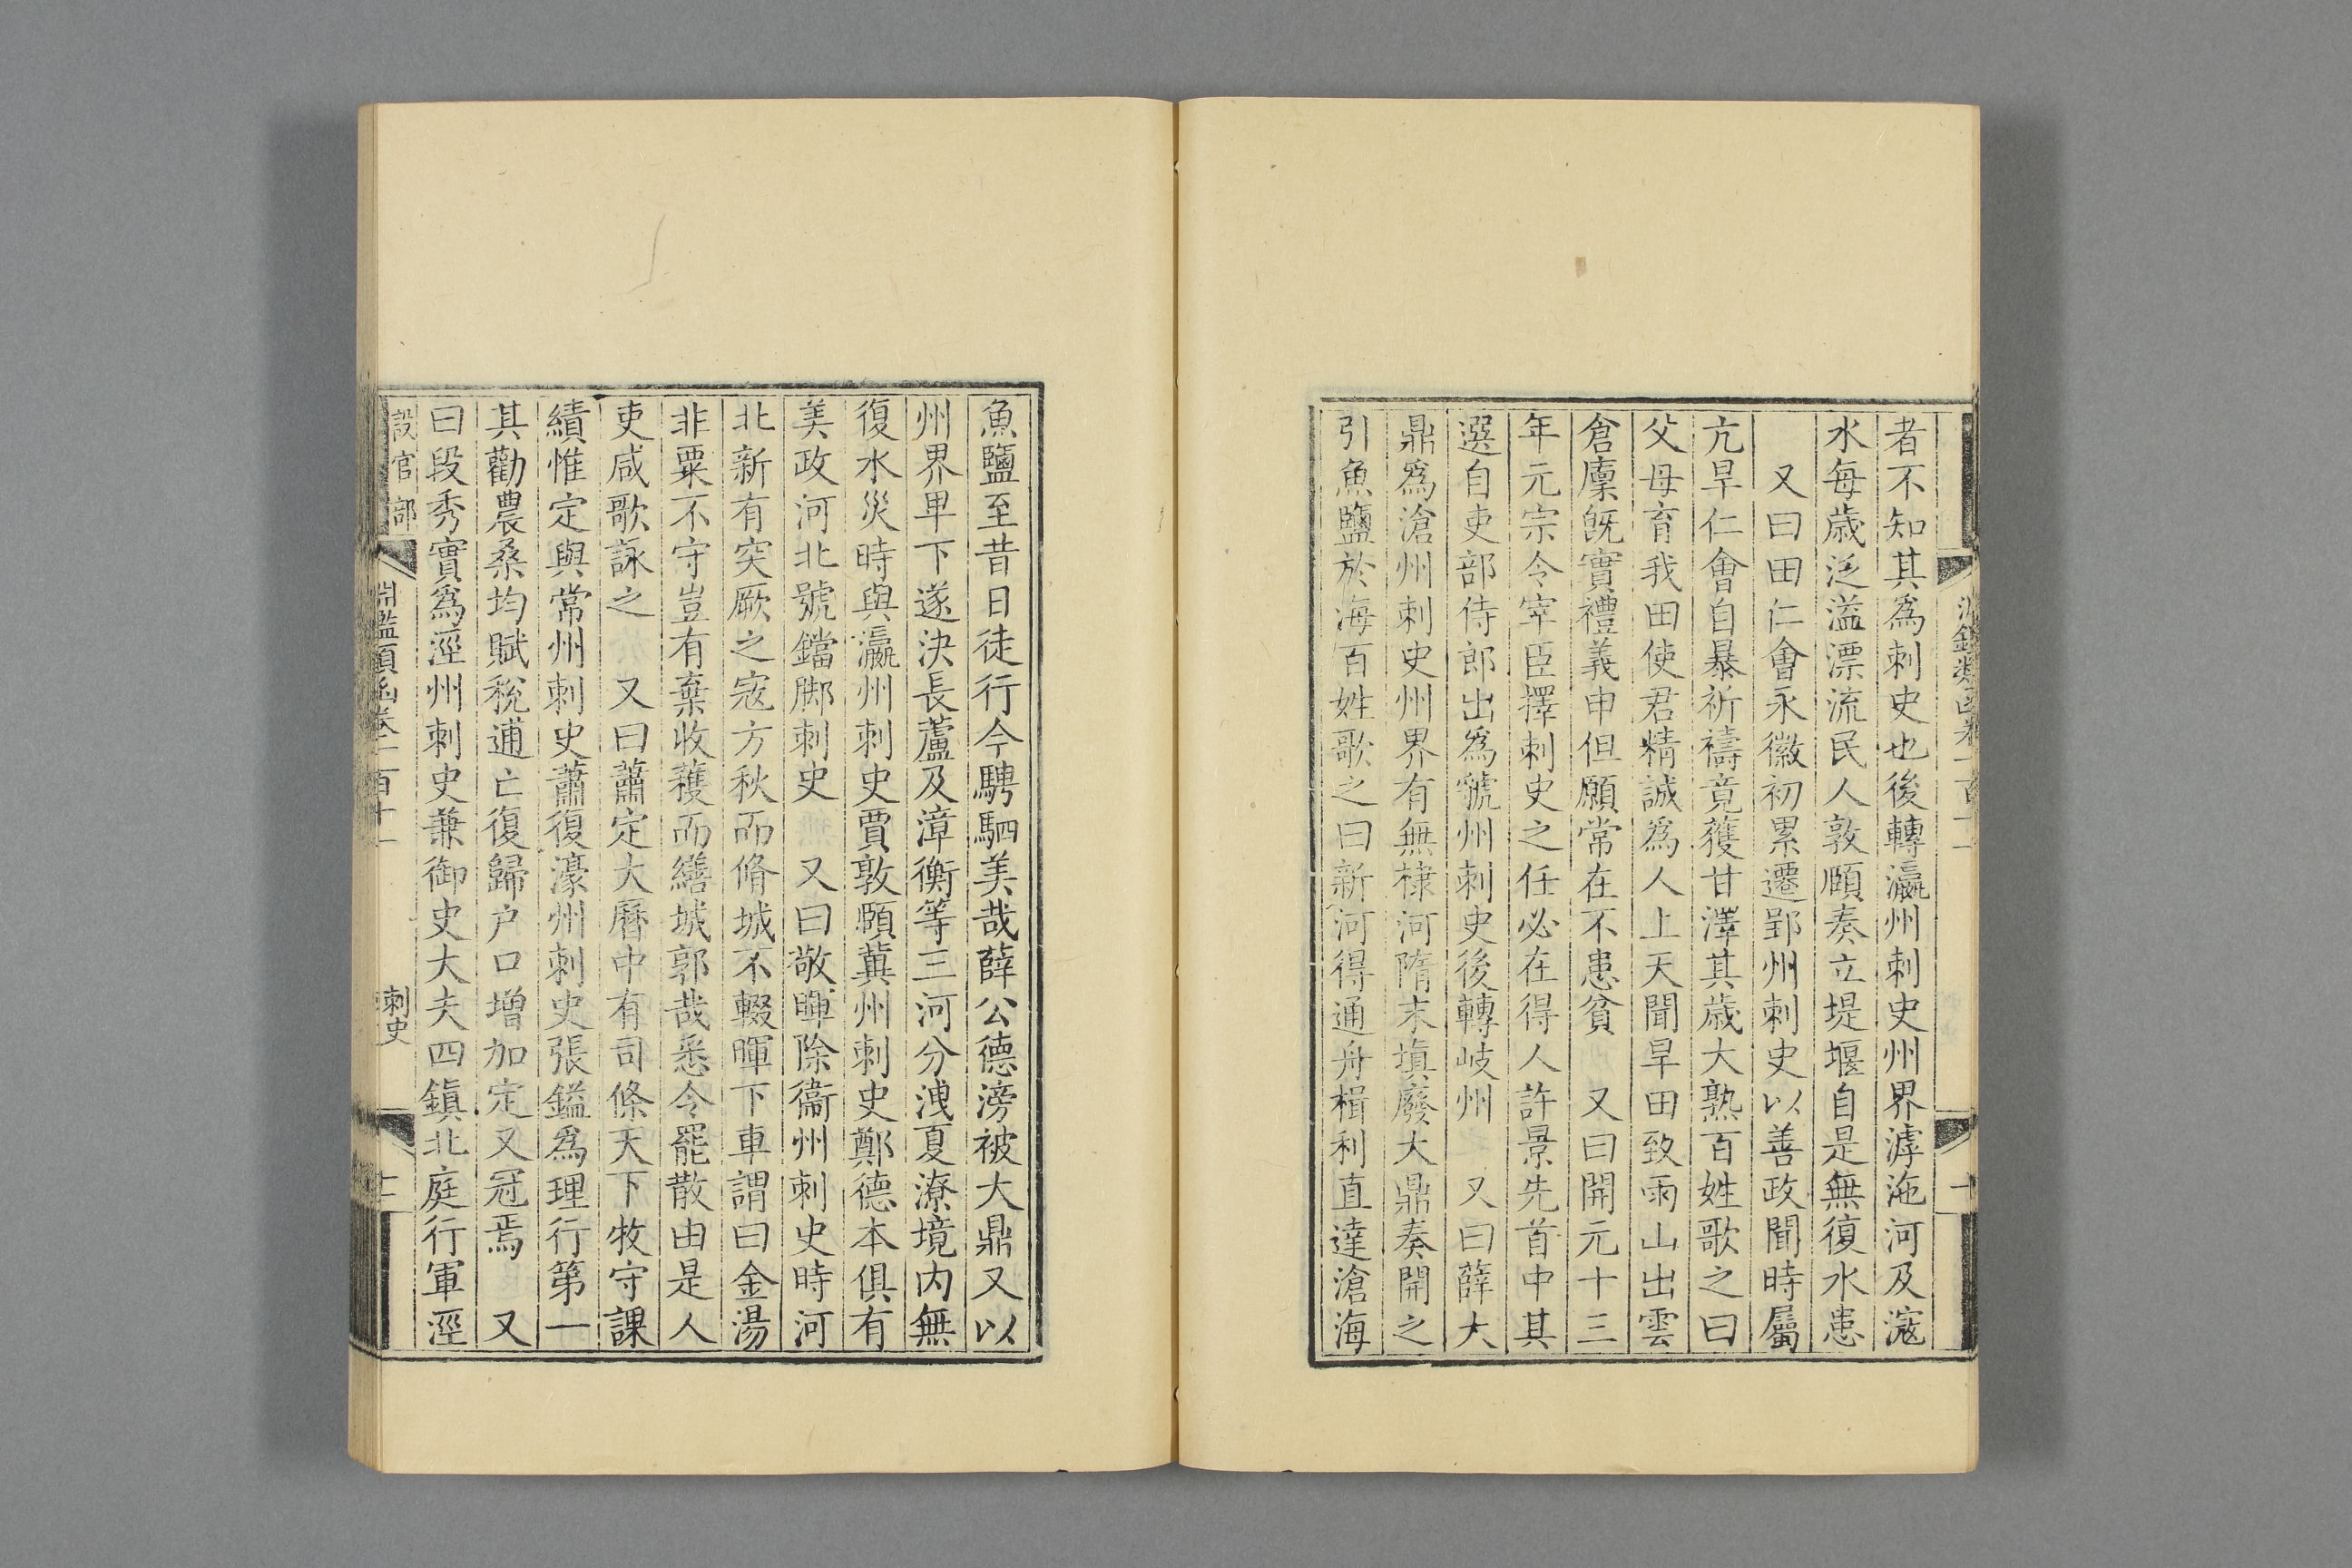 者不知其為刺史也後轉瀛州刺史州界滹沲河及滱
水每歳泛溢漂流民人敦頤奏立堤堰自是無復水患
又曰田仁會永徽初累遷郢州刺史以善政聞時屬
亢旱仁會自暴祈禱竟獲甘澤其歳大熟百姓歌之曰
父母育我田使君精誠為人上天聞旱田致雨山出雲
倉廩旣實禮義申但願常在不患貧　又曰開元十三
年元宗令宰臣擇刺史之任必在得人許景先首中其
選自吏部侍郎出為虢州刺史後轉岐州　又曰薛大
鼎為滄州刺史州界有無棣河隋末塡廢大鼎奏開之
引魚鹽於海百姓歌之曰新河得通舟楫利直達滄海
魚鹽至昔日徒行今騁駟美哉薛公德滂被大鼎又以
州界卑下遂決長蘆及漳衡等三河分洩夏潦境内無
復水災時與瀛州刺史賈敦頤冀州刺史鄭德本俱有
美政河北號鐺脚刺史　又曰敬暉除衞州刺史時河
北新有突厥之寇方秋而脩城不輟暉下車謂曰金湯
非粟不守豈有棄收穫而繕城郭哉悉令罷散由是人
吏咸歌詠之　又曰蕭定大曆中有司條天下牧守課
績惟定與常州刺史蕭復濠州刺史張鎰為理行第一
其勸農桑均賦稅逋亡復歸户口增加定又冠焉　又
曰段秀實為涇州刺史兼御史大夫四鎮北庭行軍涇
設官部
淵鑑類函卷一百十一
刺史
十二